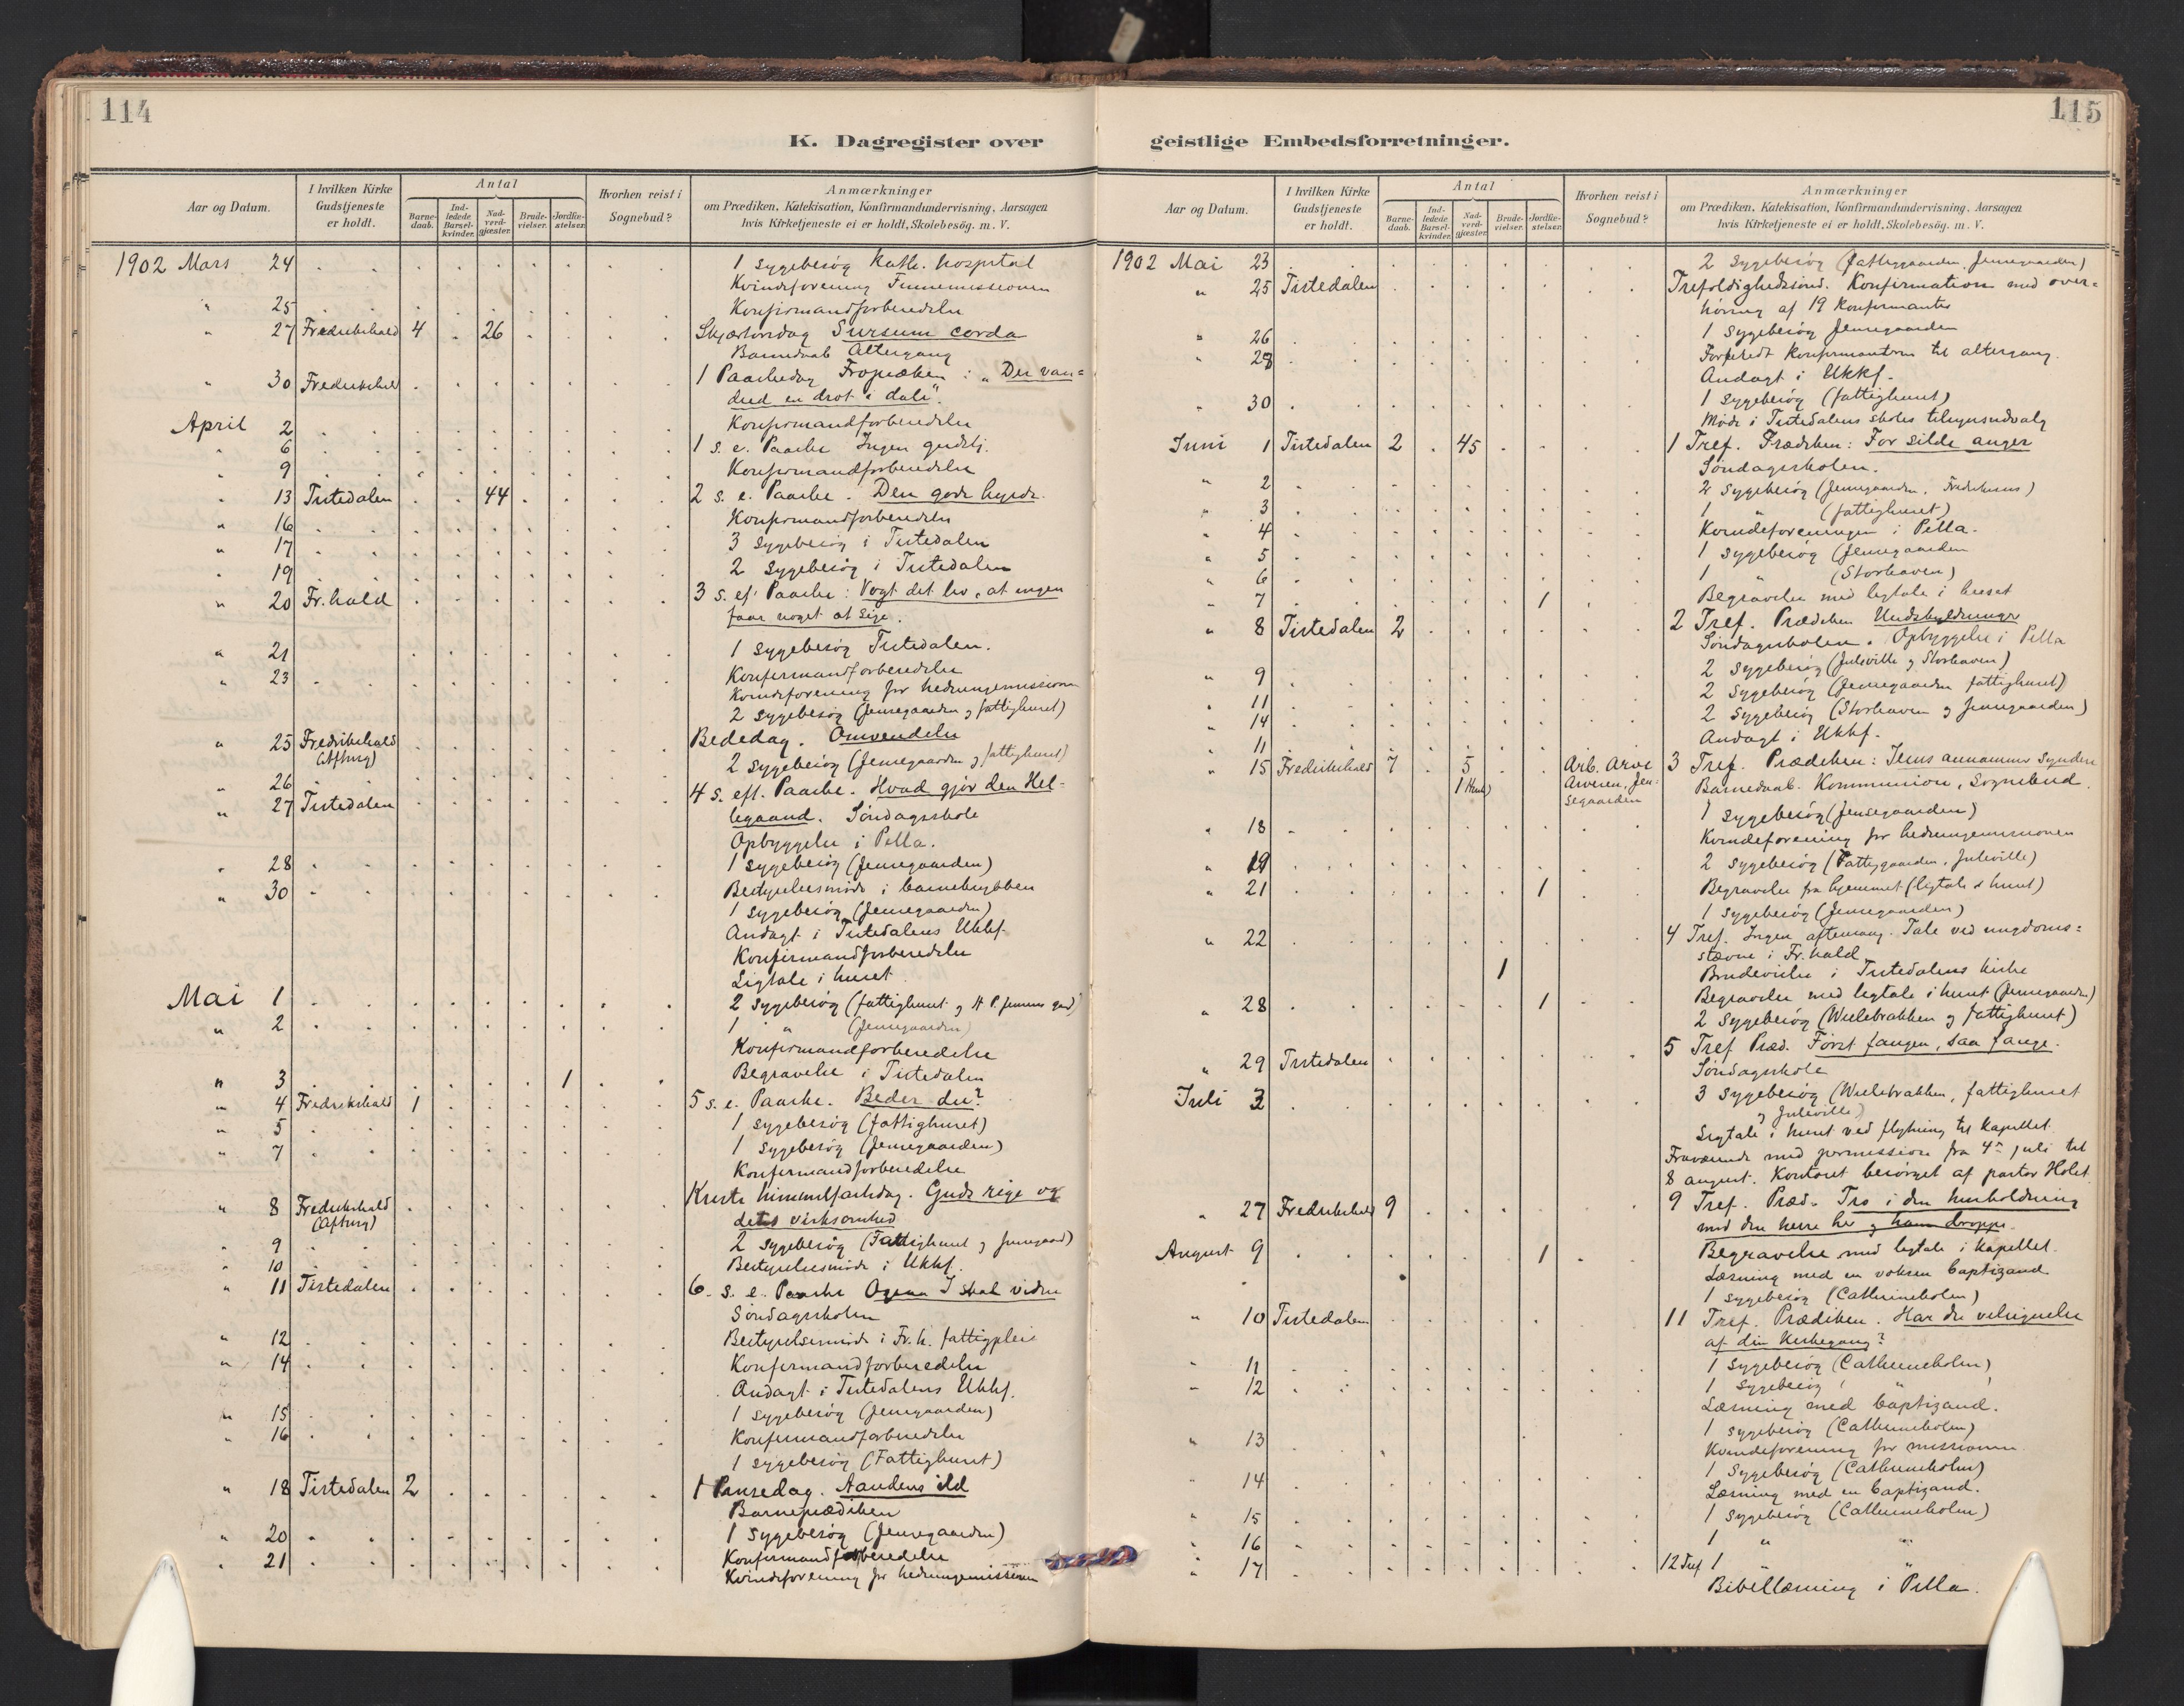 114
K. Dagregister over
Aar og Datum.
I hvilken Kirke Gudstjeneste er holdt.
Antal
Barnedaab.
Indledede Barselkvinder.
Nadverdgjæster.
Brudevielser.
Jordfæstelser.
Hvorhen reist i Sognebud?
Anmærkninger
om Prædiken, Katekisation, Konfirmandundervisning, Aarsagen
hvis Kirketjeneste ei er holdt, Skolebesög. m. V.
1902 Mars 24 1 sygebesög kath. hospital
Kvindeforening Finnemissionen
" 25 Konfirmandforberedelse
" 27 Fredrikshald 4 26 Skjærtorsdag Sursum corda
Barnedaab Altergang
" 30 Fredrikshald 1 Paaskedag Froprœken : "Der van=
dred en drot i dale".
April 2 Konfirmandforberedelse
" 6 1 s. e. Paaske Ingen gudstj.
" 9 Konfirmandforberedelse
" 13 Tistedalen 44 2 s. e. Paaske. Den gode hyrde.
" 16 Konfirmandforberedelse
" 17 3 sygebesög i Tistedalen
" 19 2 sygebesög i Tistedalen
" 20 Fr.hald 3 s. ef. Paaske: Vogt det liv, at ingen
faar noget at sige.
" 21 1 sygebesög Tistedalen.
" 23 Konfirmandforberedelse
Kvindeforening for hedningemissionen
2 sygebesög (Jensegaarden og fattighuset)
" 25 Fredrikshald (Aftsang) Bededag. Omvendelse
2 sygebesög (Jensegaarden og fattighuset)
" 26
" 27 Tistedalen 4 s. eft. Paaske. Hvad gjör den Hel-
ligaand. Söndagsskole
Opbyggelse i Pella.
" 28 1 sygebesög (Jensegaarden)
" 30 Bestyrelsesmöde i barnekrybben
1 sygebesög (Jensegaarden)
Andagt i Tistedalens Ukkf.
Konfirmandforberedelse
Ligtale i huset.
Mai 1 2 sygebesög (fattighuset og H P. Jensens gard)
" 2 1 " (Jensegaarden)
Konfirmandforberedelse
" 3 1 Begravelse i Tistedalen
" 4 Fredrikshald 1 5 s. e. Paaske. Beder du?
" 5 1 sygebesög (fattighuset)
" 7 1 sygebesög (Jensegaarden)
Konfirmandforberedelse
" 8 Fredrikshald (Aftsang) Kristi himmelfartsdag. Guds rige og
dets virksomhed
" 9 2 sygebesög (Fattighuset og Jensegaard)
" 10 Bestyrelsesmöde i Ukkf.
" 11 Tistedalen 6. s. e. Paaske Ogsaa I skal vidne
Söndagsskolen
" 12 Bestyrelsesmöde i Fr. h. fattigpleie
" 14 Konfirmandforberedelse
Andagt i Tistedalens Ukkf.
" 15 1 sygebesög (Jensegaarden)
" 16 Konfirmandforberedelse
1 sygebesög (Fattighuset)
" 18 Tistedalen 2 1 Pinsedag. Aandens ild
Barneprædiken
" 20 1 sygebesög (Jensegaarden)
" 21 Konfirmandforberedelse
Kvindeforening for hedningemissionen
115
geistlige Embedsforretninger.
Aar og Datum.
I hvilken Kirke Gudstjeneste er holdt.
Antal
Barnedaab.
Indledede Barselkvinder.
Nadverdgjæster.
Brudevielser.
Jordfæstelser.
Hvorhen reist i Sognebud?
Anmærkninger
om Prædiken, Katekisation, Konfirmandundervisning, Aarsagen
hvis Kirketjeneste ei er holdt, Skolebesög. m. V.
1902 Mai 23 2 sygebesög (Fattiggaarden, Jensegaarden)
" 25 Tistedalen Trefoldighedssönd. Konfirmation med over=
höring af 19 konfirmanter
" 26 1 sygebesög Jensegaarden
" 28 Forberedt konfirmanterne til altergang.
Andagt i Ukkf.
" 30 1 sygebesög (fattighuset)
Möde i Tistedalens skoles tilsynsudvalg
Juni 1 Tistedalen 2 45 1 Tref. Prædiken: For silde anger
Söndagsskolen.
" 2 2 sygebesög (Jensegaarden, )
" 3 1 " (fattighuset)
" 4 Kvindeforeningen i Pella.
" 5 1 sygebesög (Jensegaarden
" 6 1 " (Storhaven)
" 7 1 Begravelse med ligtale i huset
" 8 Tistedalen 2 2 Tref. Prædiken Undskyldninger
Söndagsskolen. Opbyggelse i Pella
2 sygebesög (Juleville og Storhaven)
" 9 2 sygebesög (Jensegaarden fattighuset)
" 11 2 sygebesög (Storhaven og Jensegaarden)
" 14 Andagt i Ukkf.
" 11
" 15 Fredrikshald 7 5 1 Arb. Arve Arvesen, Jensegaarden 3 Tref. Prædiken: Jesus annammer syndere
Barnedaab. Kommunion, Sognebud.
1 sygebesög (Jensegaarden)
" 18 Kvindeforening for hedningemissionen
" 19 2 sygebesög (Fattiggaarden, Juleville)
" 21 1 Begravelse fra hjemmet (ligtale i huset)
1 sygebesög (Jensegaarden)
" 22 4 Tref. Ingen aftensang. Tale ved ungdoms=
stævne i Fr.hald
1 Brudevielse i Tistedalens kirke
" 28 1 Begravelse med ligtale i huset (Jensegaarden)
2 sygebesög (Wielebrakken og fattighuset)
" 29 Tistedalen 5 Tref Præd. Först fangen, saa fange.
Söndagsskole
Juli 3 3 sygebesög (Wielebrakken, fattighuset
og Juleville)
Ligtale i huset ved flytning til kapellet.
Fraværende med permission fra 4de juli til
8 august. Kontoret besörget af pastor Holst
" 27 Fredrikshald 9 9 Tref. Præd. Tro i din husholdning
med din herre her
August 9 1 Begravelse med ligtale i kapellet.
Læsning med en voksen baptizand.
1 sygebesög (Cathrineholm)
" 10 Tistedalen 11 Tref. Prædiken. Har du velsignelse
af din kirkegang?
" 11 1 sygebesög (Cathrineholm)
" 12 1 sygebesög ( " )
Læsning med baptizand.
" 13 1 sygebesög (Cathrineholm)
Kvindeforening for missionen
" 14 1 sygebesög (Cathrineholm)
Læsning med en baptizand.
" 15 1 sygebesög (Cathrineholm)
" 16 1 " "
" 17 12 Tref 1 " "
Bibellæsning i Pella.